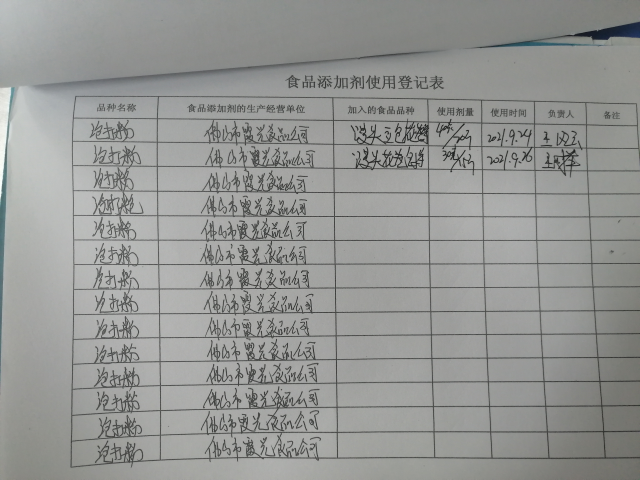 食品添加剂使用登记表
品种名称 食品添加剂的生产经营单位 加入的食品品种 使用剂量 使用时间 负责人 备注
泡打粉 佛山市霞光食品公司 馒头 2021.9.24
泡打粉 佛山市霞光食品公司 馒头 2021.9.26
泡打粉 佛山市霞光食品公司
泡打粉 佛山市霞光食品公司
泡打粉 佛山市霞光食品公司
泡打粉 佛山市霞光食品公司
泡打粉 佛山市霞光食品公司
泡打粉 佛山市霞光食品公司
泡打粉 佛山市霞光食品公司
泡打粉 佛山市霞光食品公司
泡打粉 佛山市霞光食品公司
泡打粉 佛山市霞光食品公司
泡打粉 佛山市霞光食品公司
泡打粉 佛山市霞光食品公司